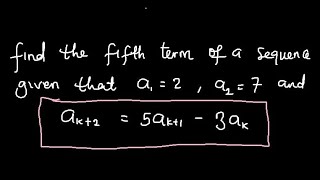 find the fifth term of a sequence
given that a₁ = 2 , a₂ = 7 and
aₖ₊₂ = 5aₖ₊₁ - 3aₖ